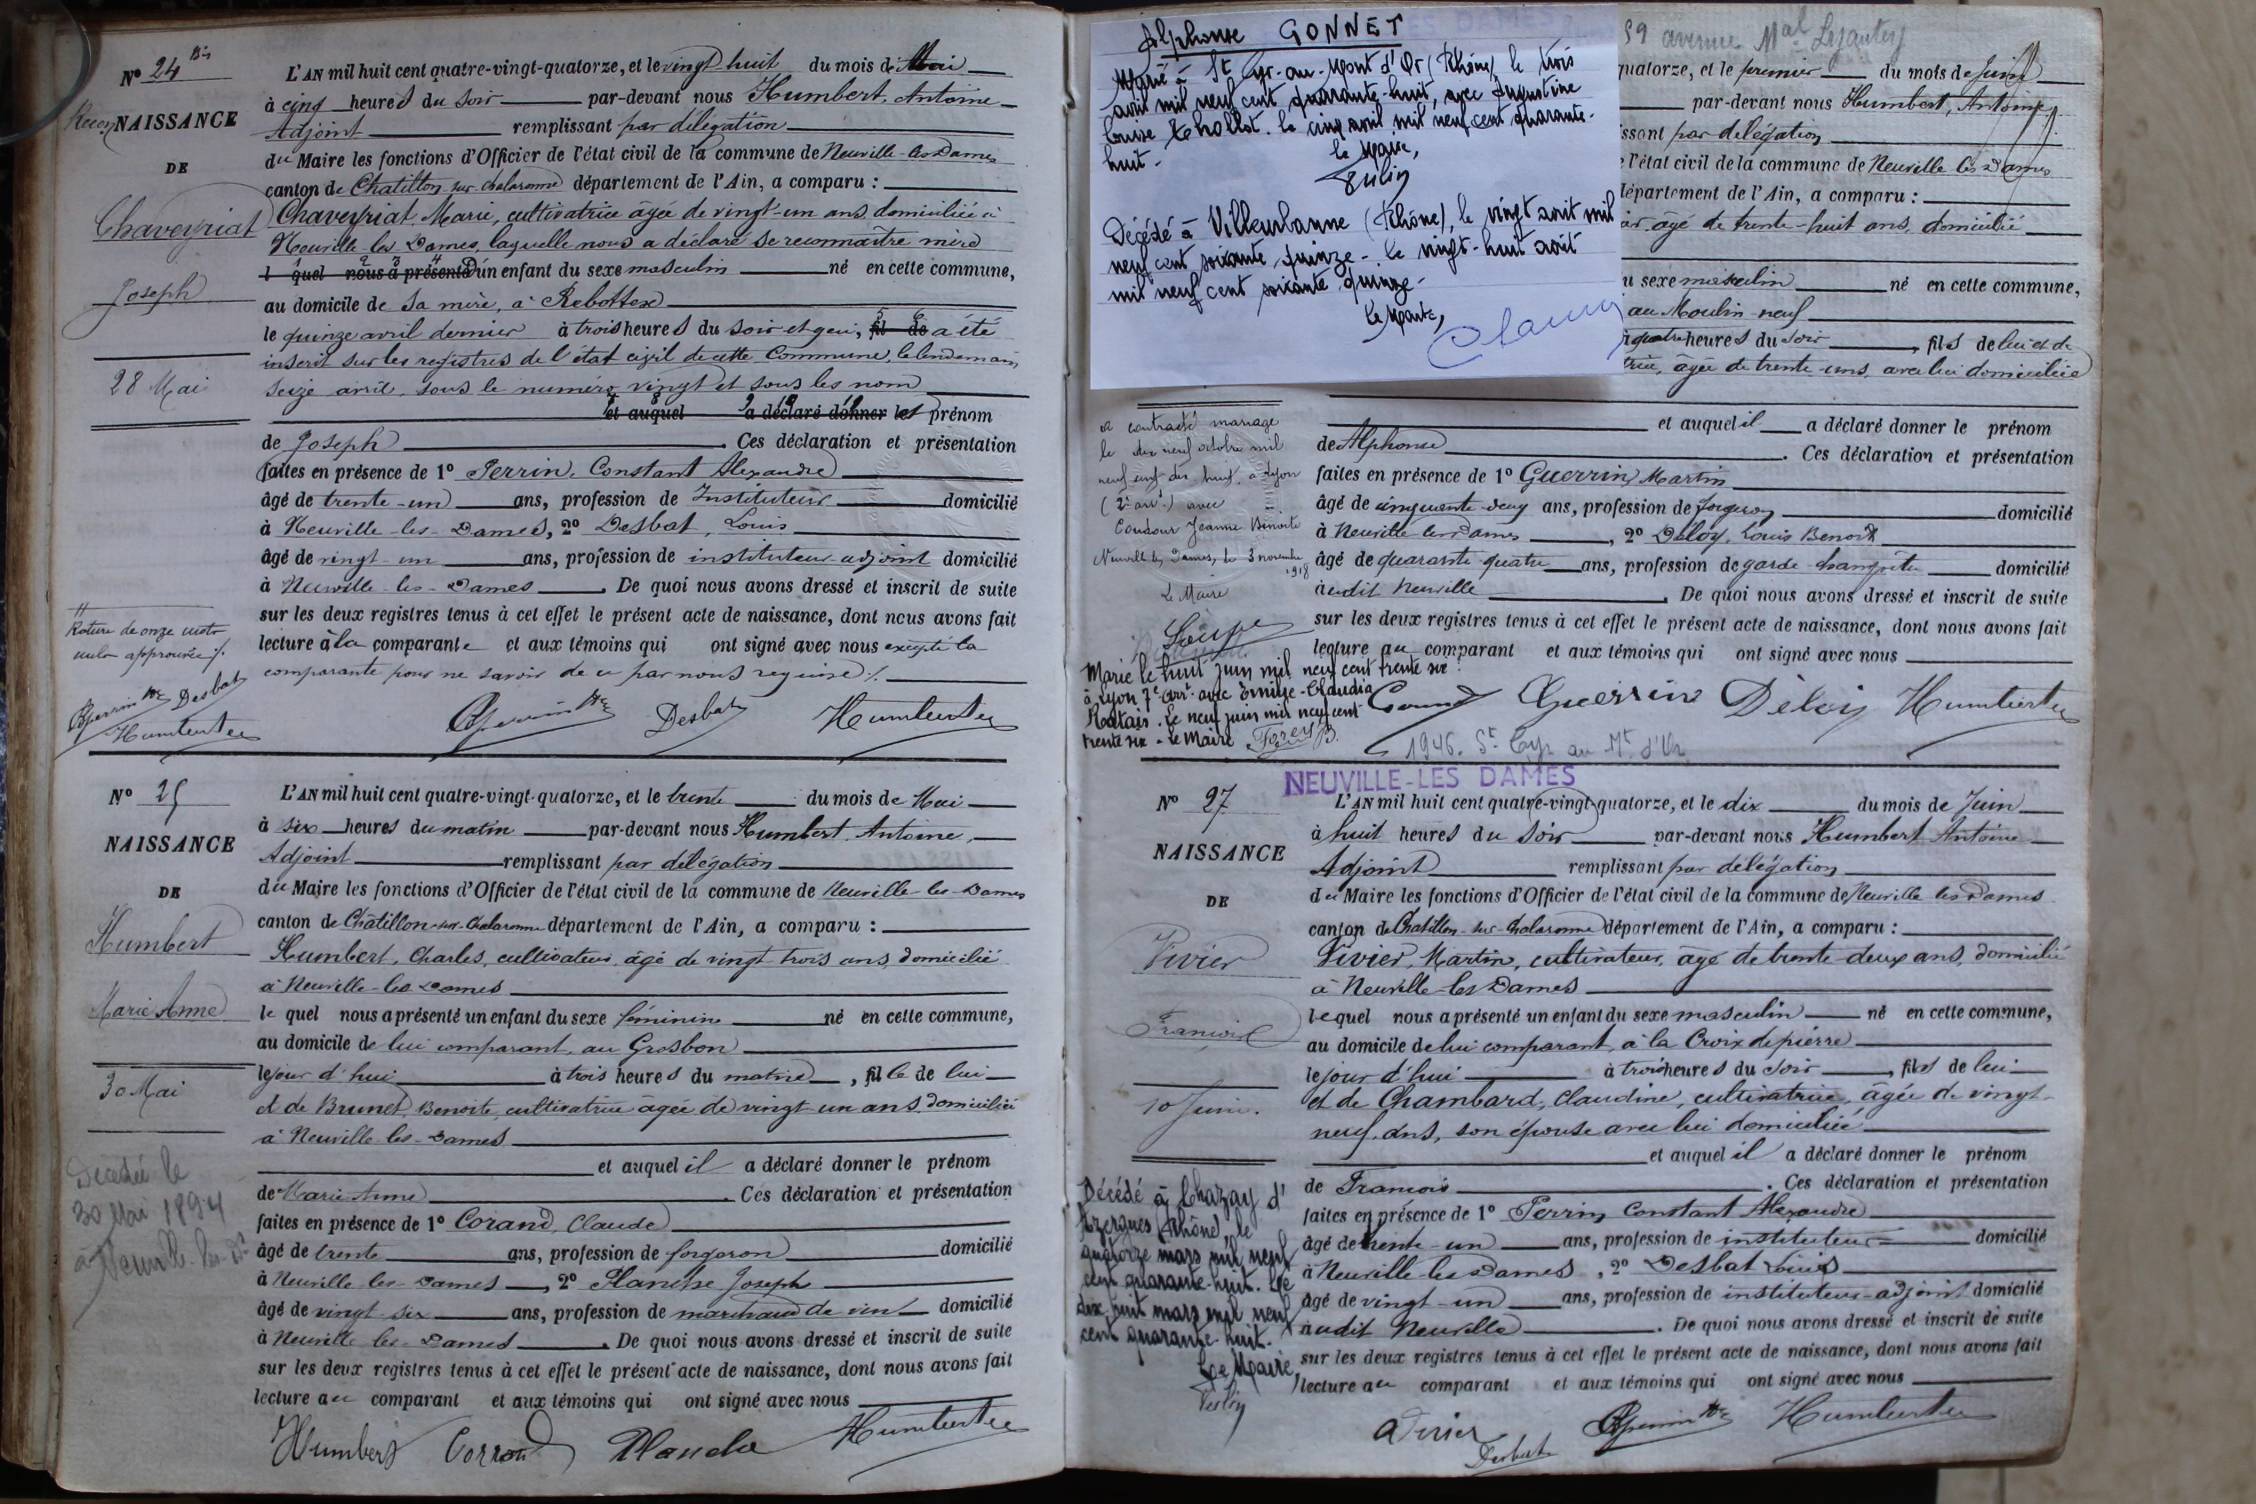 Nº 24 Bis
NAISSANCE
DE
Chaveyriat
Joseph
28 Mai
L'AN mil huit cent quatre-vingt-quatorze, et le vingt huit du mois de Mai
à cinq heures du soir par-devant nous Humbert, Antoine
Adjoint remplissant par délégation
du Maire les fonctions d'Officier de l'état civil de la commune de Neuville-les-Dames
canton de Chatillon-sur-Chalaronne département de l'Ain, a comparu :
Chaveyriat, Marie, cultivatrice âgée de vingt-un ans, domiciliée à
Neuville les Dames, laquelle nous a déclaré se reconnaître mère
l quel nous a présenté d'un enfant du sexe masculin né en cette commune,
au domicile de sa mère, à Rebottex
le quinze avril dernier à trois heures du soir et qui, fil de a été
inscrit sur les registres de l'état civil de cette Commune, le lendemain
seize avril, sous le numéro vingt et sous les nom
et auquel a déclaré donner les prénom
de Joseph. Ces déclaration et présentation
faites en présence de 1º Perrin, Constant Alexandre
âgé de trente-un ans, profession de Instituteur domicilié
à Neuville-les-Dames, 2º Desbat, Louis
âgé de vingt-un ans, profession de instituteur-adjoint domicilié
à Neuville-les-Dames. De quoi nous avons dressé et inscrit de suite
sur les deux registres tenus à cet effet le présent acte de naissance, dont nous avons fait
lecture à la comparante et aux témoins qui ont signé avec nous excepté la
comparante pour ne savoir de ce par nous requise ./.
Rature de onze mots
nuls approuvée ./.
Desbat
Humbert
Desbat
Humbert
Nº 25
NAISSANCE
DE
Humbert
Marie Anne
30 Mai
Décédée le
30 Mai 1894
à Neuville-les-Des
L'AN mil huit cent quatre-vingt-quatorze, et le trente du mois de Mai
à six heures du matin par-devant nous Humbert, Antoine,
Adjoint remplissant par délégation
du Maire les fonctions d'Officier de l'état civil de la commune de Neuville-les-Dames
canton de Châtillon-sur-Chalaronne département de l'Ain, a comparu :
Humbert, Charles, cultivateur, âgé de vingt-trois ans, domicilié
à Neuville-les-Dames
le quel nous a présenté un enfant du sexe féminin né en cette commune,
au domicile de lui comparant, au Grosbon
le jour d'hui à trois heures du matin, fil le de lui
et de Brunet, Benoite, cultivatrice âgée de vingt-un ans, domiciliée
à Neuville-les-Dames
et auquel il a déclaré donner le prénom
de Marie Anne. Ces déclaration et présentation
faites en présence de 1º Corand, Claude
âgé de trente ans, profession de forgeron domicilié
à Neuville-les-Dames, 2º Planche Joseph
âgé de vingt-six ans, profession de marchand de vin domicilié
à Neuville-les-Dames. De quoi nous avons dressé et inscrit de suite
sur les deux registres tenus à cet effet le présent acte de naissance, dont nous avons fait
lecture au comparant et aux témoins qui ont signé avec nous
Humbert Planche Humbert
Alphonse GONNET
Marié à St Cyr-au-Mont d'Or (Rhône) le trois
avril mil neuf cent quarante-huit, avec Augustine
Louise Chollet. le cinq avril mil neuf cent quarante-
huit.
le Maire,
Décédé à Villeurbanne (Rhône), le vingt août mil
neuf cent soixante quinze. le vingt-huit août
mil neuf cent soixante quinze.
Le Maire,
59 avenue Mal
quatorze, et le premier du mois de Juin
par-devant nous Humbert, Antoine,
ssant par délégation
l'état civil de la commune de Neuville les Dames
département de l'Ain, a comparu :
âgé de trente-huit ans, domicilié
u sexe masculin né en cette commune,
au Moulin-neuf
quatre heures du soir, fils de lui et de
trice, âgée de trente-ans, avec lui domiciliée
et auquel il a déclaré donner le prénom
de Alphonse. Ces déclaration et présentation
faites en présence de 1º Guerrin, Martin
âgé de cinquante-deux ans, profession de forgeron domicilié
à Neuville les Dames, 2º Deloy, Louis Benoit
âgé de quarante-quatre ans, profession de garde-champêtre domicilié
audit Neuville. De quoi nous avons dressé et inscrit de suite
sur les deux registres tenus à cet effet le présent acte de naissance, dont nous avons fait
lecture au comparant et aux témoins qui ont signé avec nous
Guerrin Deloy Humbert
a contracté mariage
le dix neuf octobre mil
neuf cent dix huit, à Lyon
(2e arrt) avec
Coudour Jeanne Benoite
Neuville les Dames, le 3 novembre
1918
Le Maire
Marié le huit juin mil neuf cent trente six
à Lyon 7e arrt avec Emilie-Claudia
Ratais. Le neuf juin mil neuf cent
trente six - Le Maire
1946. St Cyr au Mt d'Or
NEUVILLE-LES DAMES
Nº 27
NAISSANCE
DE
Vivier
François
10 Juin.
L'AN mil huit cent quatre-vingt-quatorze, et le dix du mois de Juin
à huit heures du soir par-devant nous Humbert Antoine
Adjoint remplissant par délégation
du Maire les fonctions d'Officier de l'état civil de la commune de Neuville les Dames
canton de Chatillon-sur-Chalaronne département de l'Ain, a comparu :
Vivier, Martin, cultivateur, âgé de trente-deux ans, domicilié
à Neuville-les-Dames
lequel nous a présenté un enfant du sexe masculin né en cette commune,
au domicile de lui comparant, à la Croix de pierre
le jour d'hui à trois heures du soir, fils de lui
et de Chambard, Claudine, cultivatrice, âgée de vingt-
neuf ans, son épouse avec lui domiciliée
et auquel il a déclaré donner le prénom
de François. Ces déclaration et présentation
faites en présence de 1º Perrin Constant Alexandre
âgé de trente-un ans, profession de instituteur domicilié
à Neuville-les-Dames, 2º Desbat Louis
âgé de vingt-un ans, profession de instituteur-adjoint domicilié
audit Neuville. De quoi nous avons dressé et inscrit de suite
sur les deux registres tenus à cet effet le présent acte de naissance, dont nous avons fait
lecture au comparant et aux témoins qui ont signé avec nous
Décédé à Chazay d'
Azergues (Rhône), le
quatorze mars mil neuf
cent quarante-huit. Le
dix huit mars mil neuf
cent quarante-huit.
Le Maire,
Vivier Desbat Humbert